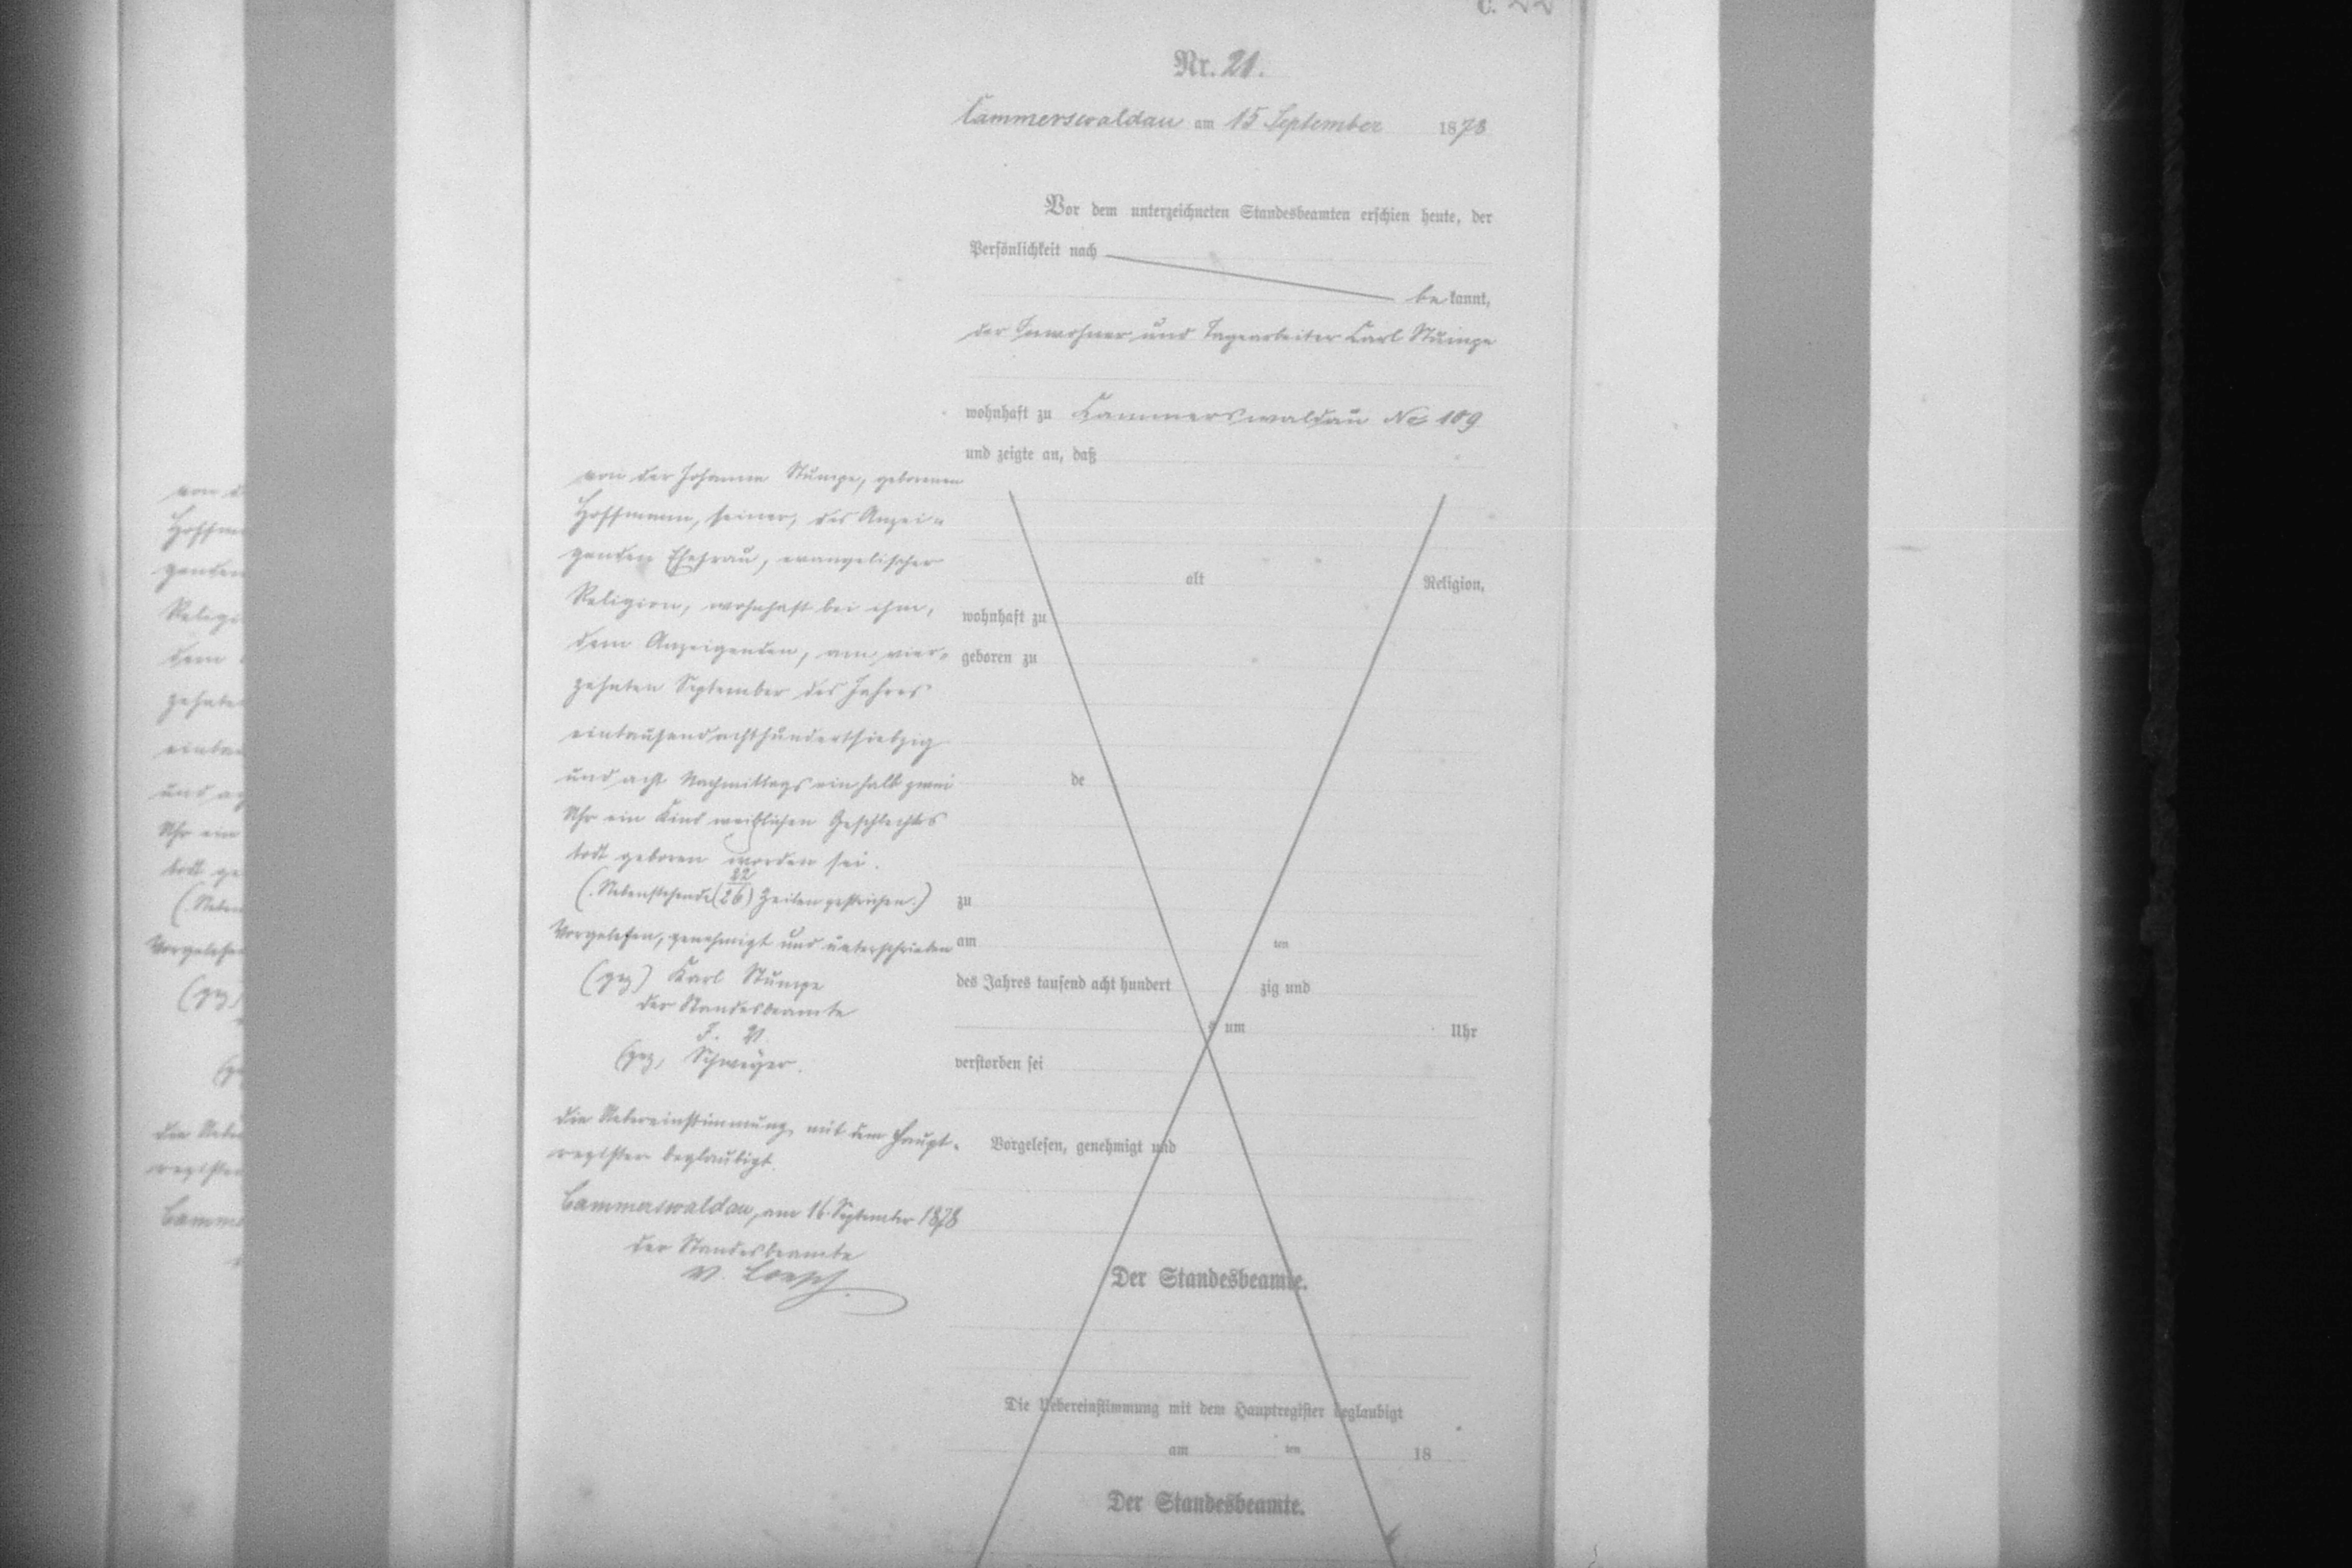 C. 22
Nr. 21.
Cammerswaldau am 15 September 1878
Vor dem unterzeichneten Standesbeamten erschien heute, der
Persönlichkeit nach
be kannt,
der Inwohner und Tagearbeiter Carl Stumpe
wohnhaft zu Kammerswaldau No 109
und zeigte an, daß
von der Johanna Stumpe, geborenen
Hoffmann, seiner, des Anzei-
genden Ehefrau, evangelischer
Religion, wohnhaft bei ihm,
dem Anzeigenden, am vier-
zehnten September des Jahres
eintausendachthundertsiebzig
und acht Nachmittags ein halb zwei
Uhr ein Kind weiblichen Geschlechts
todt geboren worden sei.
(Nebenstehende (26) 22 Zeilen gestrichen.)
Vorgelesen, genehmigt und unterschrieben
(gez) Karl Stumpe
der Standesbeamte
(gez, Schweyer.
die Uebereinstimmung mit dem Haupt-
register beglaubigt.
Cammerswaldau, am 16. September 1878
der Standesbeamte
v. Loesch
alt Religion,
wohnhaft zu
geboren zu
de
zu
am ten
des Jahres tausend acht hundert zig und
um Uhr
verstorben sei
Vorgelesen, genehmigt und
Der Standesbeamte.
Die Uebereinstimmung mit dem Hauptregister beglaubigt
am ten 18
Der Standesbeamte.
von d
Hoffm
genden
Religi
dem
zehnte
eintau
und ac
Uhr ein
todt ge
(Neben
Vorgelesen
(gez)
(ge
die Uebe
register
Camme